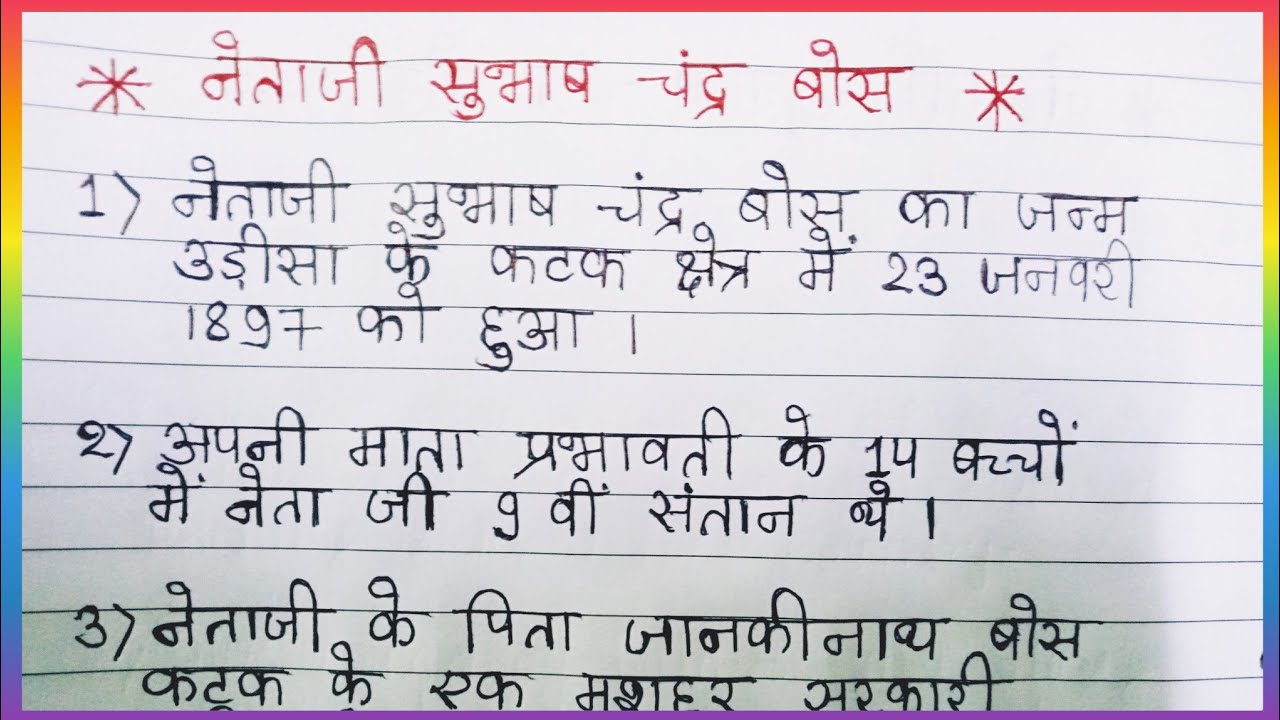 * नेताजी सुभाष चंद्र बोस *
1) नेताजी सुभाष चंद्र बोस का जन्म
उड़ीसा के कटक क्षेत्र में 23 जनवरी
1897 को हुआ ।
2) अपनी माता प्रभावती के 14 बच्चों
में नेता जी 9 वीं संतान थे ।
3) नेताजी के पिता जानकीनाथ बोस
कटक के एक मशहूर सरकारी